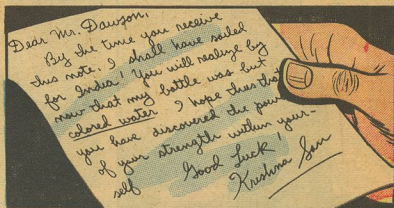 Dear Mr. Dawson,
By the time you receive
this note, I shall have sailed
for India! You will realize by
now that my bottle was but
colored water. I hope thus that
you have discovered the
of your strength within your-
self
Good Luck!
Krishna San